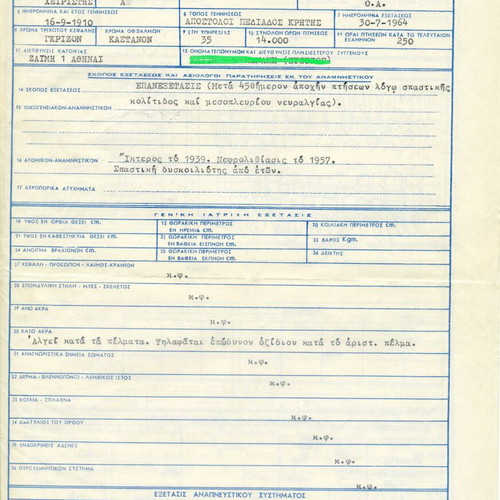 ΧΕΙΡΙΣΤΗΣ Α Ο.Α.
4 ΗΜΕΡΟΜΗΝΙΑ ΚΑΙ ΕΤΟΣ ΓΕΝΝΗΣΕΩΣ 6 ΤΟΠΟΣ ΓΕΝΝΗΣΕΩΣ 7 ΗΜΕΡΟΜΗΝΙΑ ΕΞΕΤΑΣΕΩΣ
16-9-1910 ΑΠΟΣΤΟΛΟΙ ΠΕΔΙΑΔΟΣ ΚΡΗΤΗΣ 30-7-1964
8 ΧΡΩΜΑ ΤΡΙΧΩΤΟΥ ΚΕΦΑΛΗΣ ΧΡΩΜΑ ΟΦΘΑΛΜΩΝ 9 ΕΤΗ ΥΠΗΡΕΣΙΑΣ 10 ΣΥΝΟΛΟΝ ΩΡΩΝ ΠΤΗΣΕΩΣ 11 ΩΡΑΙ ΠΤΗΣΕΩΣ ΚΑΤΑ ΤΟ ΤΕΛΕΥΤΑΙΟΝ ΕΞΑΜΗΝΟΝ
ΓΚΡΙΖΟΝ ΚΑΣΤΑΝΟΝ 35 14.000 250
ΔΙΕΥΘΥΝΣΙΣ ΚΑΤΟΙΚΙΑΣ 13 ΟΝΟΜΑΤΕΠΩΝΥΜΟΝ ΚΑΙ ΔΙΕΥΘΥΝΣΙΣ ΠΛΗΣΙΕΣΤΕΡΟΥ ΣΥΓΓΕΝΟΥΣ
ΖΑΪΜΗ 1 ΑΘΗΝΑΙ
ΣΚΟΠΟΣ ΕΞΕΤΑΣΕΩΣ ΚΑΙ ΑΞΙΟΛΟΓΟΙ ΠΑΡΑΤΗΡΗΣΕΙΣ ΕΚ ΤΟΥ ΑΝΑΜΝΗΣΤΙΚΟΥ
14 ΣΚΟΠΟΣ ΕΞΕΤΑΣΕΩΣ ΕΠΑΝΕΞΕΤΑΣΙΣ (Μετά 45θήμερον ἀποχήν πτήσεων λόγῳ σπαστικῆς
15 ΟΙΚΟΓΕΝΕΙΑΚΟΝ-ΑΝΑΜΝΗΣΤΙΚΟΝ κολίτιδος καί μεσοπλευρίου νευραλγίας).
16 ΑΤΟΜΙΚΟΝ-ΑΝΑΜΝΗΣΤΙΚΟΝ Ἴκτερος τό 1939. Νεφρολιθίασις τό 1957.
Σπαστική δυσκοιλιότης ἀπό ἐτῶν.
17 ΑΕΡΟΠΟΡΙΚΑ ΑΤΥΧΗΜΑΤΑ
ΓΕΝΙΚΗ ΙΑΤΡΙΚΗ ΕΞΕΤΑΣΙΣ
18 ΥΨΟΣ ΕΝ ΟΡΘΙΑ ΘΕΣΕΙ cm. 19 ΘΩΡΑΚΙΚΗ ΠΕΡΙΜΕΤΡΟΣ ΕΝ ΗΡΕΜΙΑ cm. 20 ΚΟΙΛΙΑΚΗ ΠΕΡΙΜΕΤΡΟΣ cm.
21 ΥΨΟΣ ΕΝ ΚΑΘΕΣΤΗΚΥΙΑ ΘΕΣΕΙ cm. ΘΩΡΑΚΙΚΗ ΠΕΡΙΜΕΤΡΟΣ ΕΝ ΒΑΘΕΙΑ ΕΙΣΠΝΟΗ cm. 23 ΒΑΡΟΣ Kgm.
24 ΑΝΟΙΓΜΑ ΒΡΑΧΙΟΝΩΝ cm. ΘΩΡΑΚΙΚΗ ΠΕΡΙΜΕΤΡΟΣ ΕΝ ΒΑΘΕΙΑ ΕΚΠΝΟΗ cm. 26 ΔΕΙΚΤΗΣ
27 ΚΕΦΑΛΗ - ΠΡΟΣΩΠΟΝ - ΛΑΙΜΟΣ-ΚΡΑΝΙΟΝ
κ.φ.
28 ΣΠΟΝΔΥΛΙΚΗ ΣΤΗΛΗ - ΜΥΕΣ - ΣΚΕΛΕΤΟΣ
κ.φ.
29 ΑΝΩ ΑΚΡΑ
κ.φ.
30 ΚΑΤΩ ΑΚΡΑ
Ἀλγεῖ κατά τά πέλματα. Ψηλαφᾶται ἐπώδυνον ὀζίδιον κατά τό ἀριστ. πέλμα.
31 ΑΝΑΓΝΩΡΙΣΤΙΚΑ ΣΗΜΕΙΑ ΣΩΜΑΤΟΣ
32 ΔΕΡΜΑ - ΒΛΕΝΝΟΓΟΝΟΙ - ΛΕΜΦΙΚΟΣ ΙΣΤΟΣ
κ.φ.
33 ΚΟΙΛΙΑ - ΣΠΛΑΧΝΑ
κ.φ.
34 ΔΑΚΤΥΛΙΟΣ ΤΟΥ ΟΡΘΟΥ
κ.φ.
35 ΕΝΔΟΚΡΙΝΕΙΣ ΑΔΕΝΕΣ
κ.φ.
36 ΟΥΡΟΓΕΝΝΗΤΙΚΟΝ ΣΥΣΤΗΜΑ
κ.φ.
ΕΞΕΤΑΣΙΣ ΑΝΑΠΝΕΥΣΤΙΚΟΥ ΣΥΣΤΗΜΑΤΟΣ